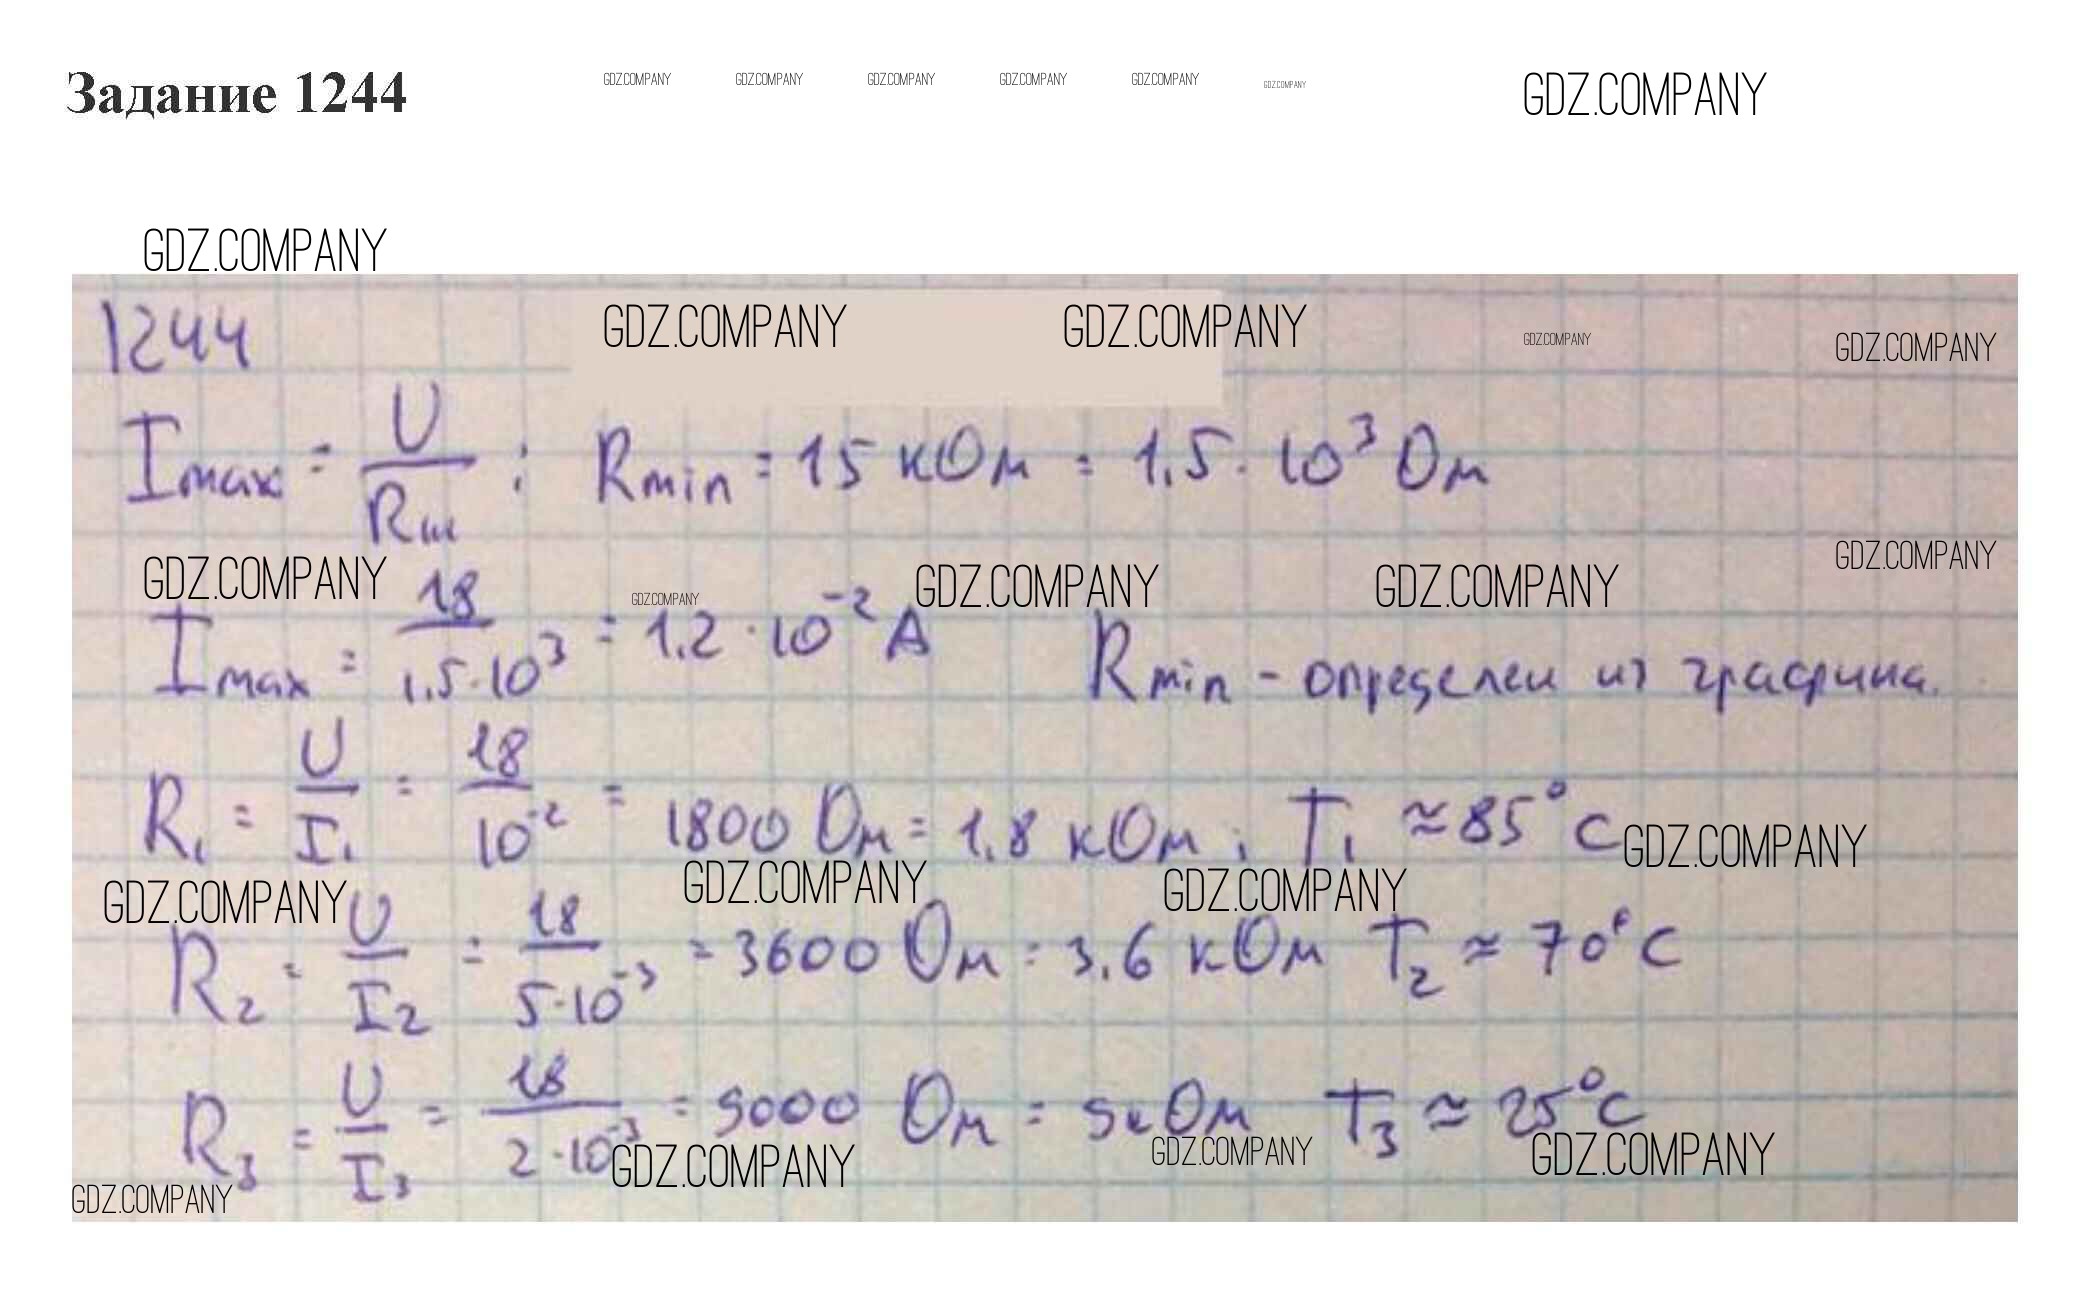 Задание 1244
GDZ.COMPANY GDZ.COMPANY GDZ.COMPANY GDZ.COMPANY GDZ.COMPANY GDZ.COMPANY GDZ.COMPANY
GDZ.COMPANY
1244
GDZ.COMPANY GDZ.COMPANY GDZ.COMPANY GDZ.COMPANY
Imax = U/Rш ; Rmin = 15 кОм = 1,5 · 10³ Ом
GDZ.COMPANY GDZ.COMPANY GDZ.COMPANY GDZ.COMPANY GDZ.COMPANY
Imax = 18/1,5·10³ = 1,2 · 10⁻² А Rmin - определен из графика.
R₁ = U/I₁ = 18/10⁻² = 1800 Ом = 1,8 кОм ; T₁ ≈ 85°C
GDZ.COMPANY
GDZ.COMPANY GDZ.COMPANY GDZ.COMPANY
R₂ = U/I₂ = 18/5·10⁻³ = 3600 Ом = 3,6 кОм T₂ ≈ 70°C
R₃ = U/I₃ = 18/2·10⁻³ = 9000 Ом = 9кОм T₃ ≈ 25°C
GDZ.COMPANY GDZ.COMPANY GDZ.COMPANY
GDZ.COMPANY